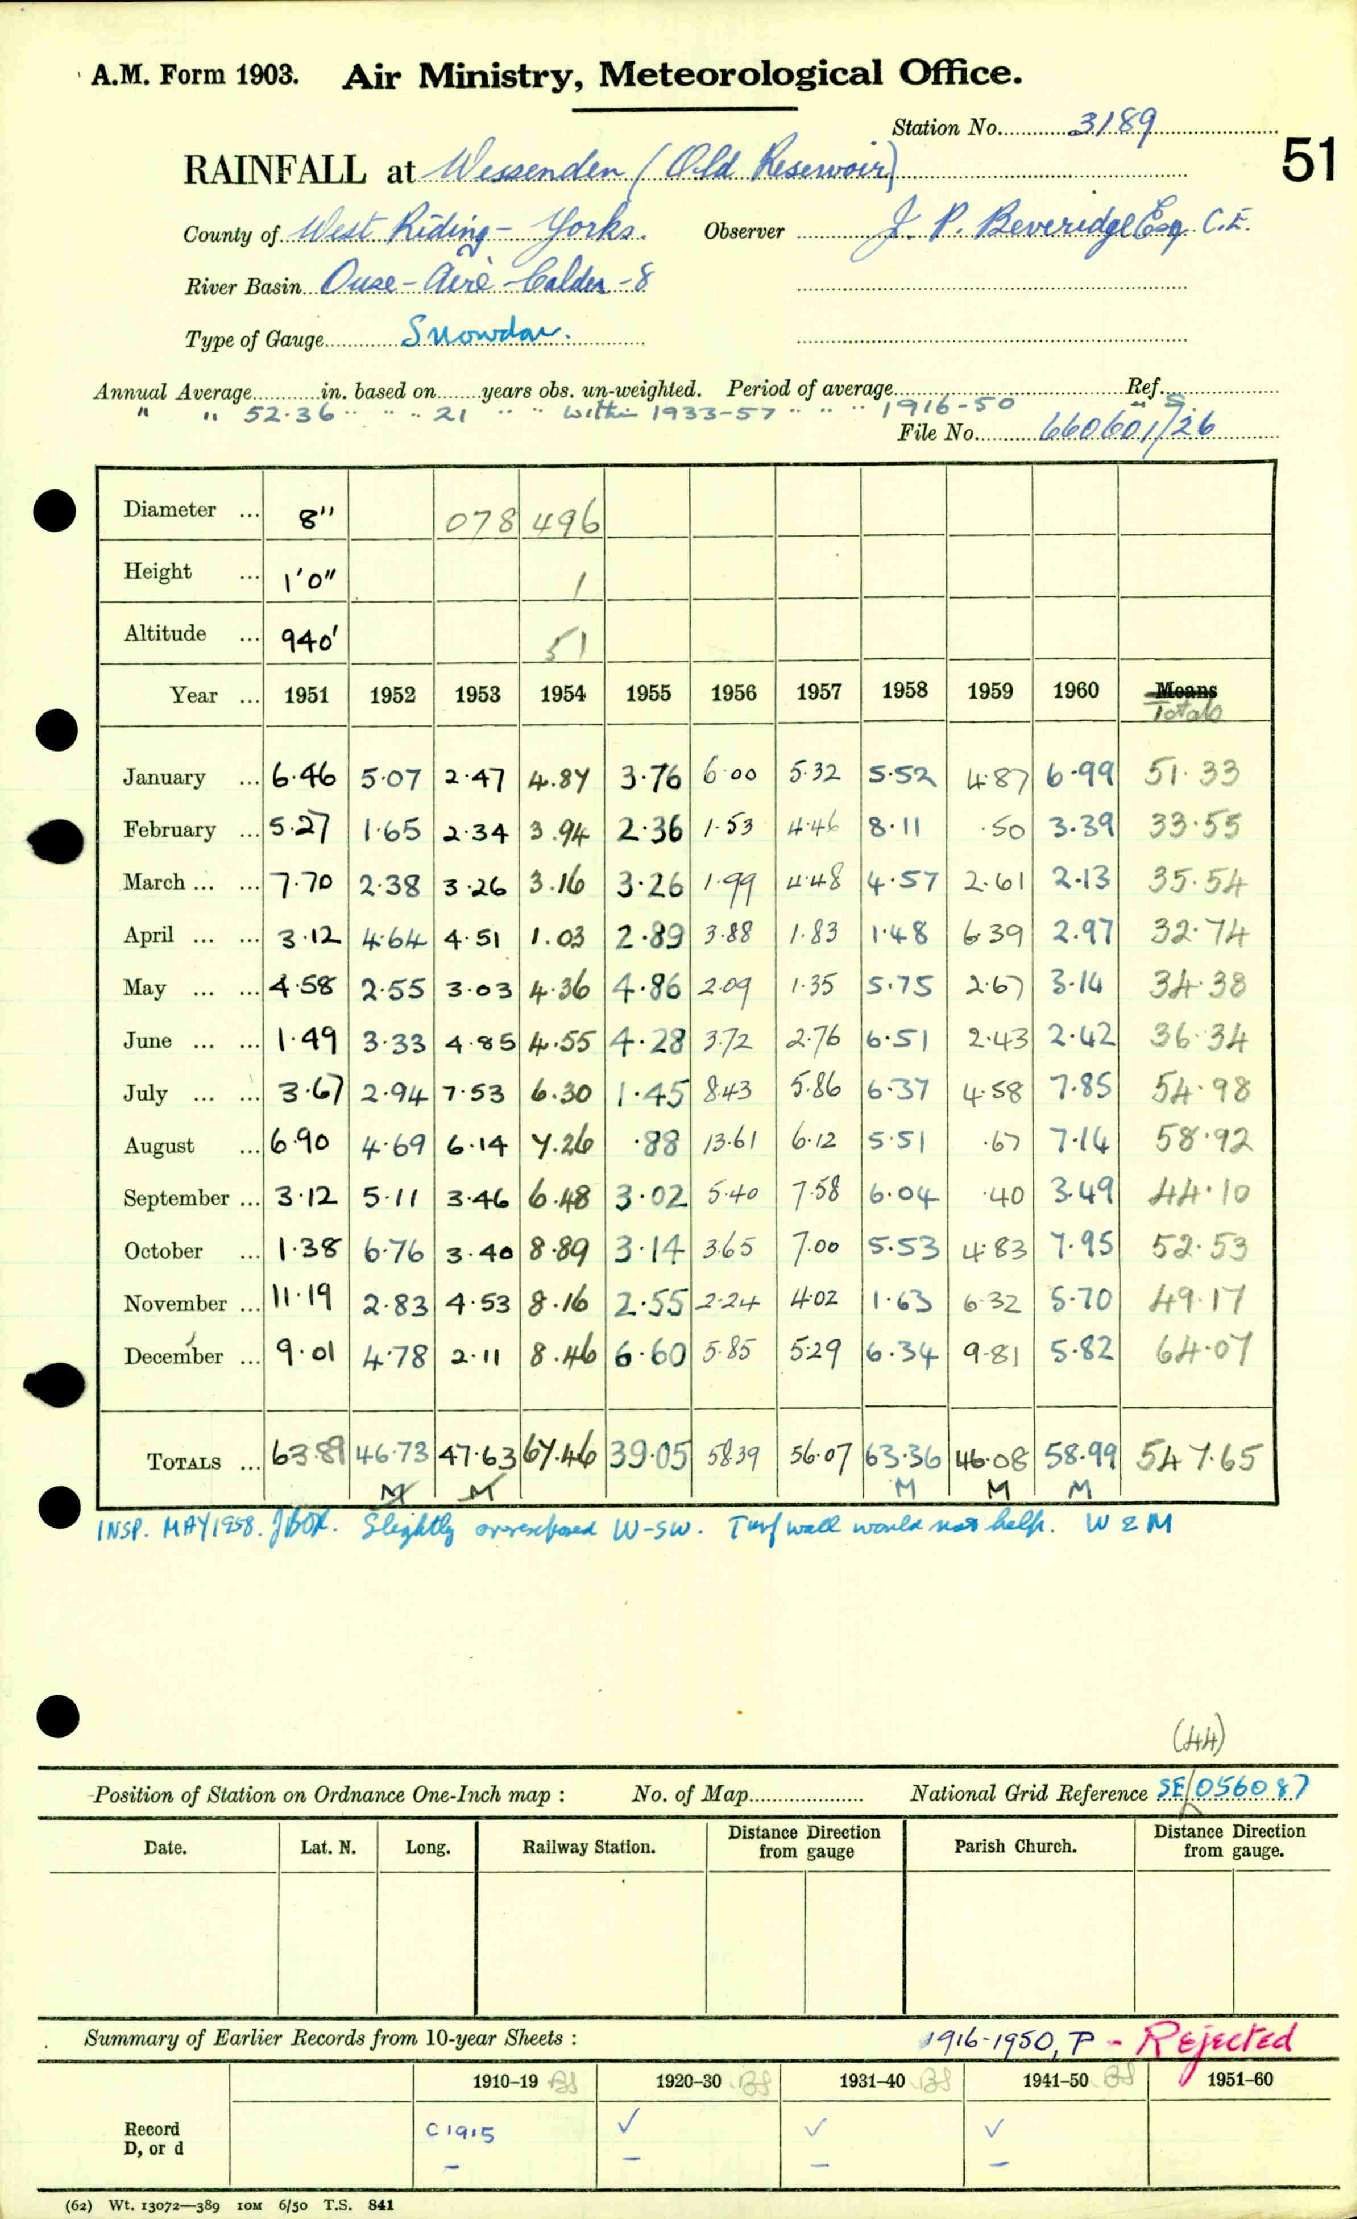 A.M. Form 1903. Air Ministry, Meteorological Office.
Station No. 3189
51
RAINFALL at Wessenden (Old Reservoir)
County of West Riding - Yorks. Observer J. P. Beveridge Esq. C.E.
River Basin Ouse - Aire - Calder - 8
Type of Gauge Snowdon.
Annual Average in. based on years obs. un-weighted. Period of average Ref.
" " 52.36 " " " 21 " " " within 1933-57 " " " 1916-50 " S.
File No. 660601/26
Diameter ... 8" 078 496
Height ... 1'0" 1
Altitude ... 940' 51
Year ... 1951 1952 1953 1954 1955 1956 1957 1958 1959 1960 Means
Totals
January ... 6.46 5.07 2.47 4.87 3.76 6.00 5.32 5.52 4.87 6.99 51.33
February ... 5.27 1.65 2.34 3.94 2.36 1.53 4.46 8.11 .50 3.39 33.55
March ... ... 7.70 2.38 3.26 3.16 3.26 1.99 4.48 4.57 2.61 2.13 35.54
April ... ... 3.12 4.64 4.51 1.03 2.89 3.88 1.83 1.48 6.39 2.97 32.74
May ... ... 4.58 2.55 3.03 4.36 4.86 2.09 1.35 5.75 2.67 3.14 34.38
June ... ... 1.49 3.33 4.85 4.55 4.28 3.72 2.76 6.51 2.43 2.42 36.34
July ... ... 3.67 2.94 7.53 6.30 1.45 8.43 5.86 6.37 4.58 7.85 54.98
August ... 6.90 4.69 6.14 7.26 .88 13.61 6.12 5.51 .67 7.14 58.92
September ... 3.12 5.11 3.46 6.48 3.02 5.40 7.58 6.04 .40 3.49 44.10
October ... 1.38 6.76 3.40 8.89 3.14 3.65 7.00 5.53 4.83 7.95 52.53
November ... 11.19 2.83 4.53 8.16 2.55 2.24 4.02 1.63 6.32 5.70 49.17
December ... 9.01 4.78 2.11 8.46 6.60 5.85 5.29 6.34 9.81 5.82 64.07
TOTALS ... 63.89 46.73 47.63 67.46 39.05 58.39 56.07 63.36 46.08 58.99 547.65
M M M M M
INSP. MAY 1958. Slightly overexposed W-SW. Turf wall would not help. W & M
(44)
Position of Station on Ordnance One-Inch map : No. of Map National Grid Reference SE/056087
Date. Lat. N. Long. Railway Station. Distance from gauge Direction Parish Church. Distance from gauge. Direction
Summary of Earlier Records from 10-year Sheets : 1916-1950, P - Rejected
1910-19 BS 1920-30 BS 1931-40 BS 1941-50 BS 1951-60
Record C1915 ✓ ✓ ✓
D, or d - - - -
(62) Wt. 13072—389 10M 6/50 T.S. 841